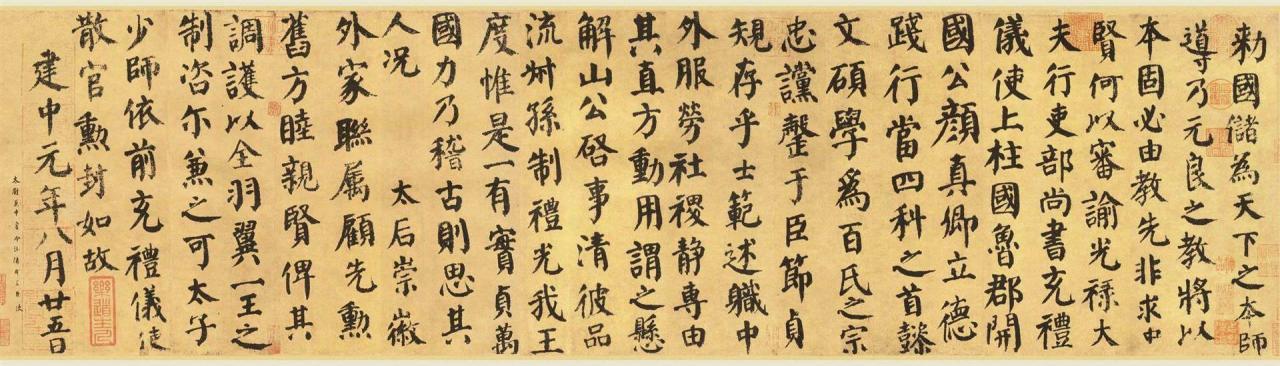 勑國儲為天下之本師
導乃元良之教將以
本固必由教先非求中
賢何以審諭光祿大
夫行吏部尚書充禮
儀使上柱國魯郡開
國公顏真卿立德
踐行當四科之首懿
文碩學爲百氏之宗
忠讜罄于臣節貞
規存乎士範述職中
外服勞社稷静專由
其直方動用謂之懸
解山公啓事清彼品
流叔孫制禮光我王
度惟是一有實貞萬
國力乃稽古則思其
人况 太后崇徽
外家聯属顧先勳
舊方睦親賢俾其
調護以全羽翼一王之
制咨尔兼之可太子
少師依前充禮儀使
散官勳封如故
建中元年八月廿五日